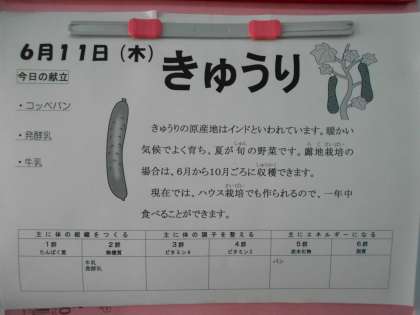 6月11日(木)
きゅうり
今日の献立
・コッペパン
・発酵乳
・牛乳
きゅうりの原産地はインドといわれています。暖かい
気候でよく育ち、夏が旬の野菜です。露地栽培の
場合は、6月から10月ごろに収穫できます。
現在では、ハウス栽培でも作られるので、一年中
食べることができます。
主に体の組織をつくる 主に体の調子を整える 主にエネルギーになる
1群 2群 3群 4群 5群 6群
たんぱく質 無機質 ビタミンA ビタミンC 炭水化物 脂質
牛乳 パン
発酵乳